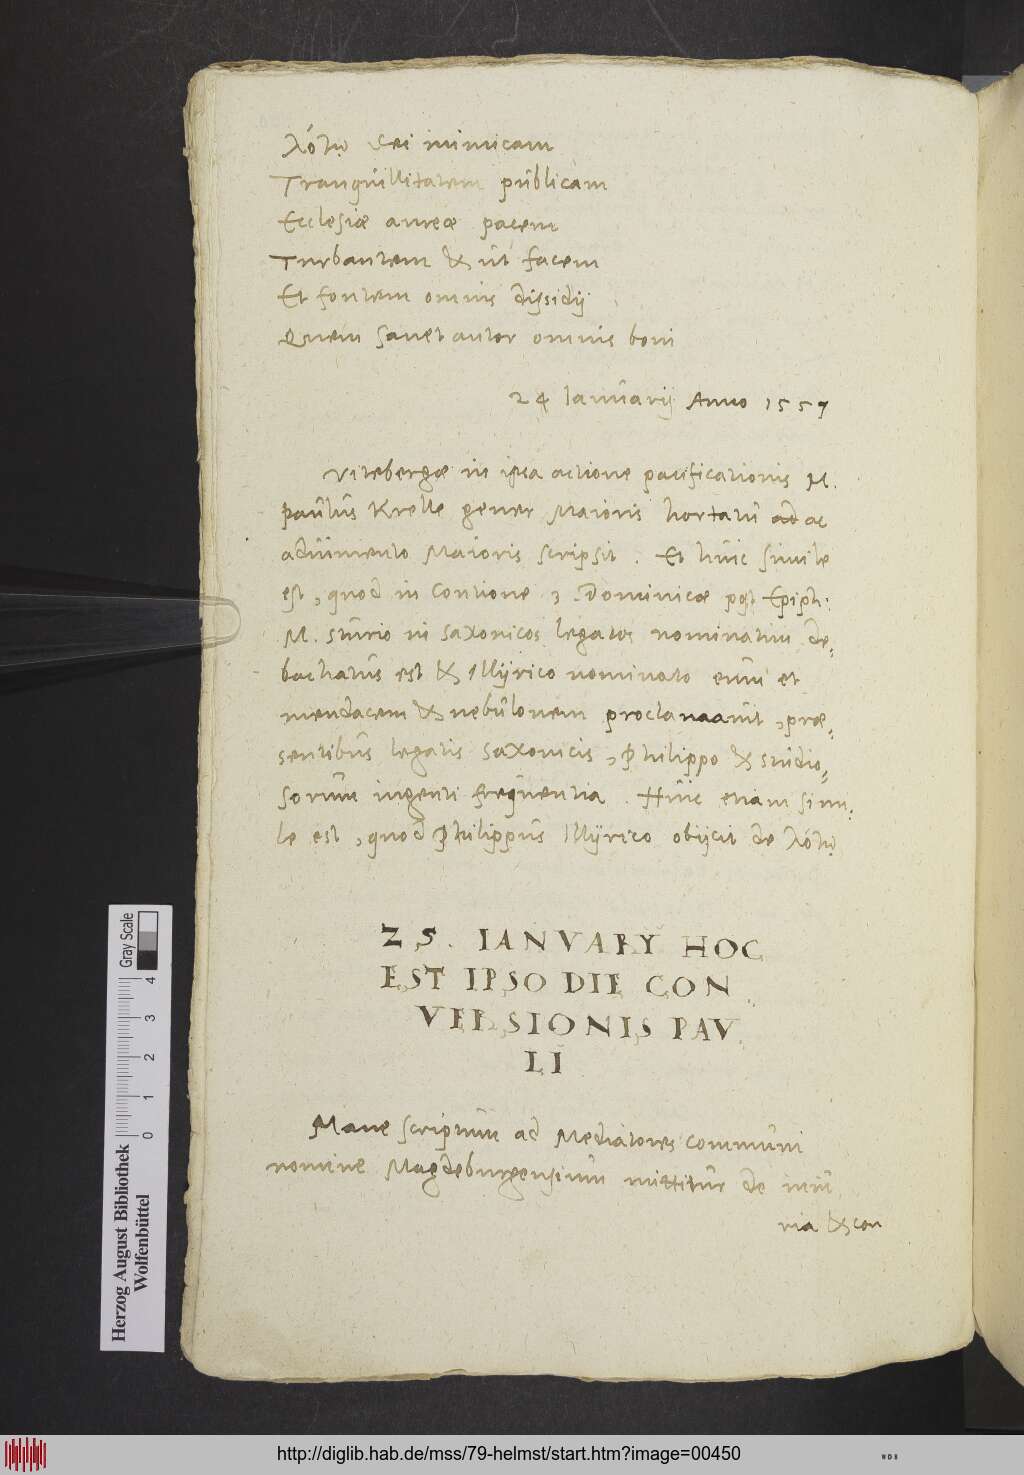 λότῳ Dei inimicam
Tranquillitatem publicam
Ecclesiæ aureæ pacem
Turbantem & ut facem
Et fontem omnis dissidij
Quem sanet autor omnis boni
24 Ianuarij Anno 1557
Vitebergæ in ipsa actione pacificationis M.
Paulus Krelle gener Maioris hortatu ad ac
adiumento Maioris scripsit. Et huic simile
est, quod in contione 3 Dominicæ post Epiph:
M. Sturio in Saxonicos legatos nominatim de-
bachatus est & Illyrico nominato eum et
mendacem & nebulonem proclamauit, præ-
sentibus legatis Saxonicis, Philippo & studio-
sorum ingenti frequentia. Huic etiam simi-
le est, quod Philippus Illyrico obijcit de λότῳ
25. IANVARY HOC
EST IPSO DIE CON
VERSIONIS PAV
LI
Mane scriptum ad Mediatores communi
nomine Magdeburgensium mittitur de iniu
ria & con
Herzog August Bibliothek
Wolfenbüttel
0 1 2 3 4
Gray Scale
http://diglib.hab.de/mss/79-helmst/start.htm?image=00450